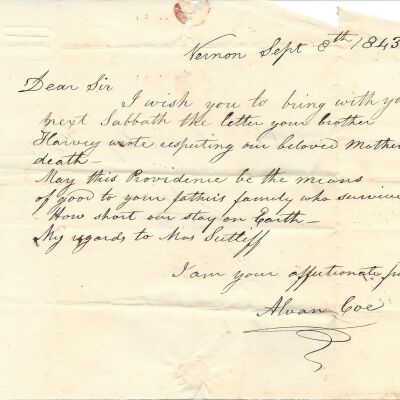 Vernon Sept 8th 1843
Dear Sir
I wish you to bring with yo
next Sabbath the letter your brother
Harvey wrote respecting our beloved Mother
death—
May this Providence be the means
of good to your father's family who survive
How short our stay on Earth—
My regards to Mrs Sutliff
I am your affectionate fr
Alvan Coe